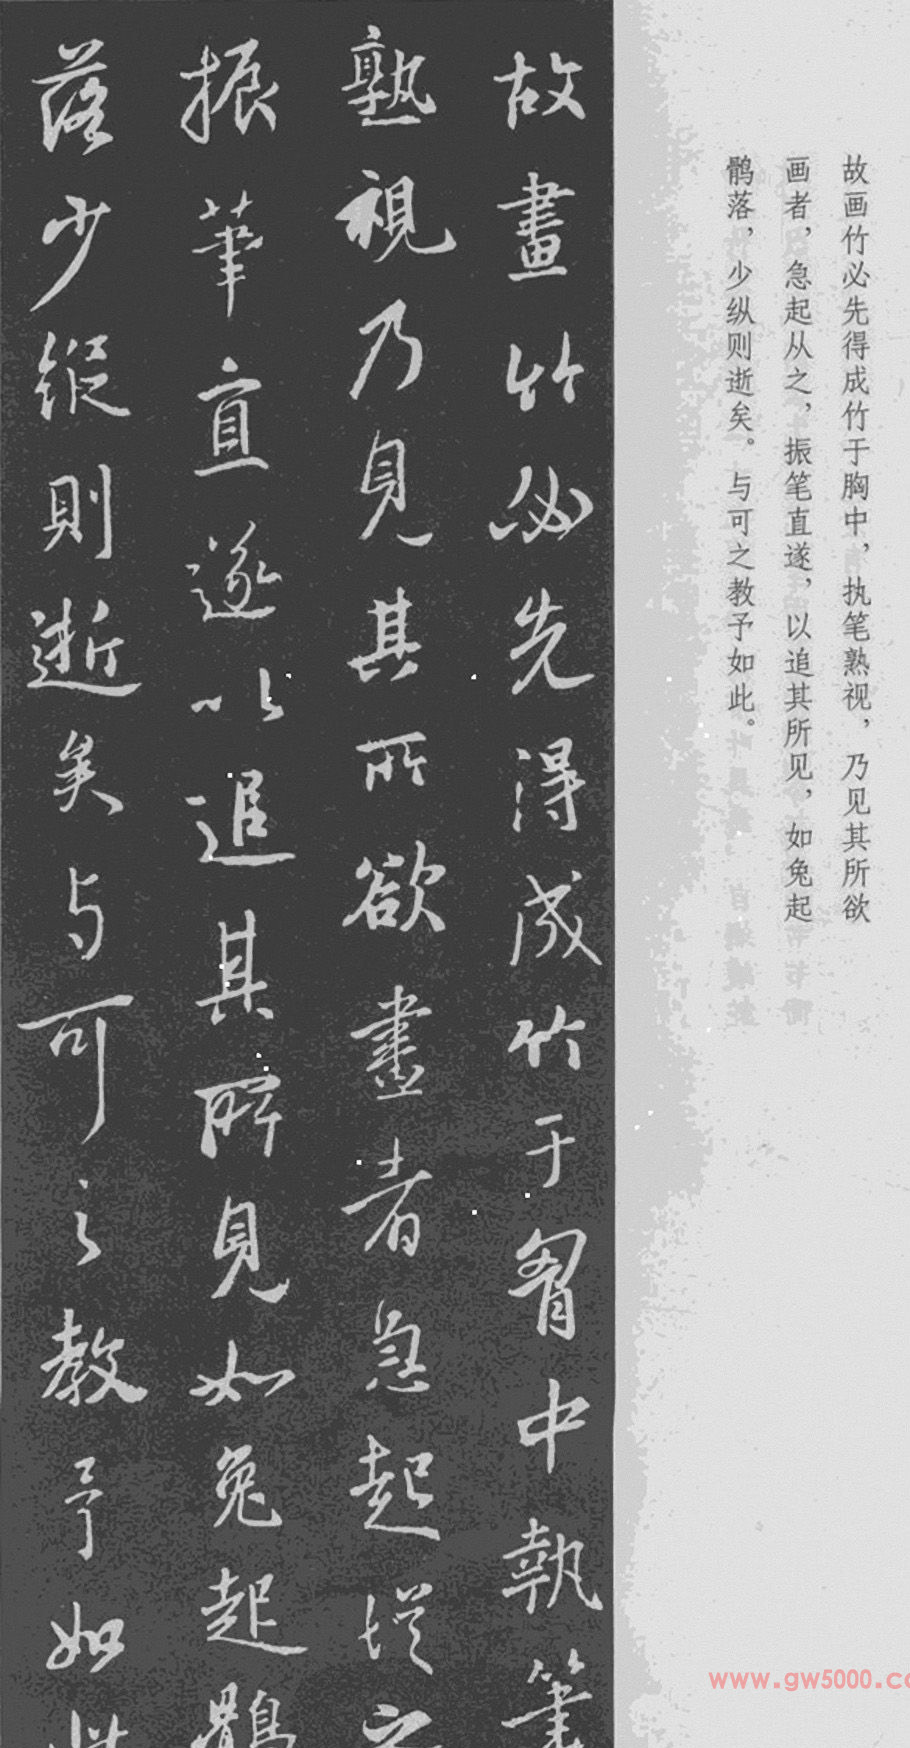 故画竹必先得成竹于胸中，执笔熟视，乃见其所欲
画者，急起从之，振笔直遂，以追其所见，如兔起
鹘落，少纵则逝矣。与可之教予如此。
故畫竹必先得成竹于胷中執筆
熟視乃見其所欲畫者急起從之
振筆直遂以追其所見如兔起鶻
落少縱則逝矣与可之教予如此
www.gw5000.co